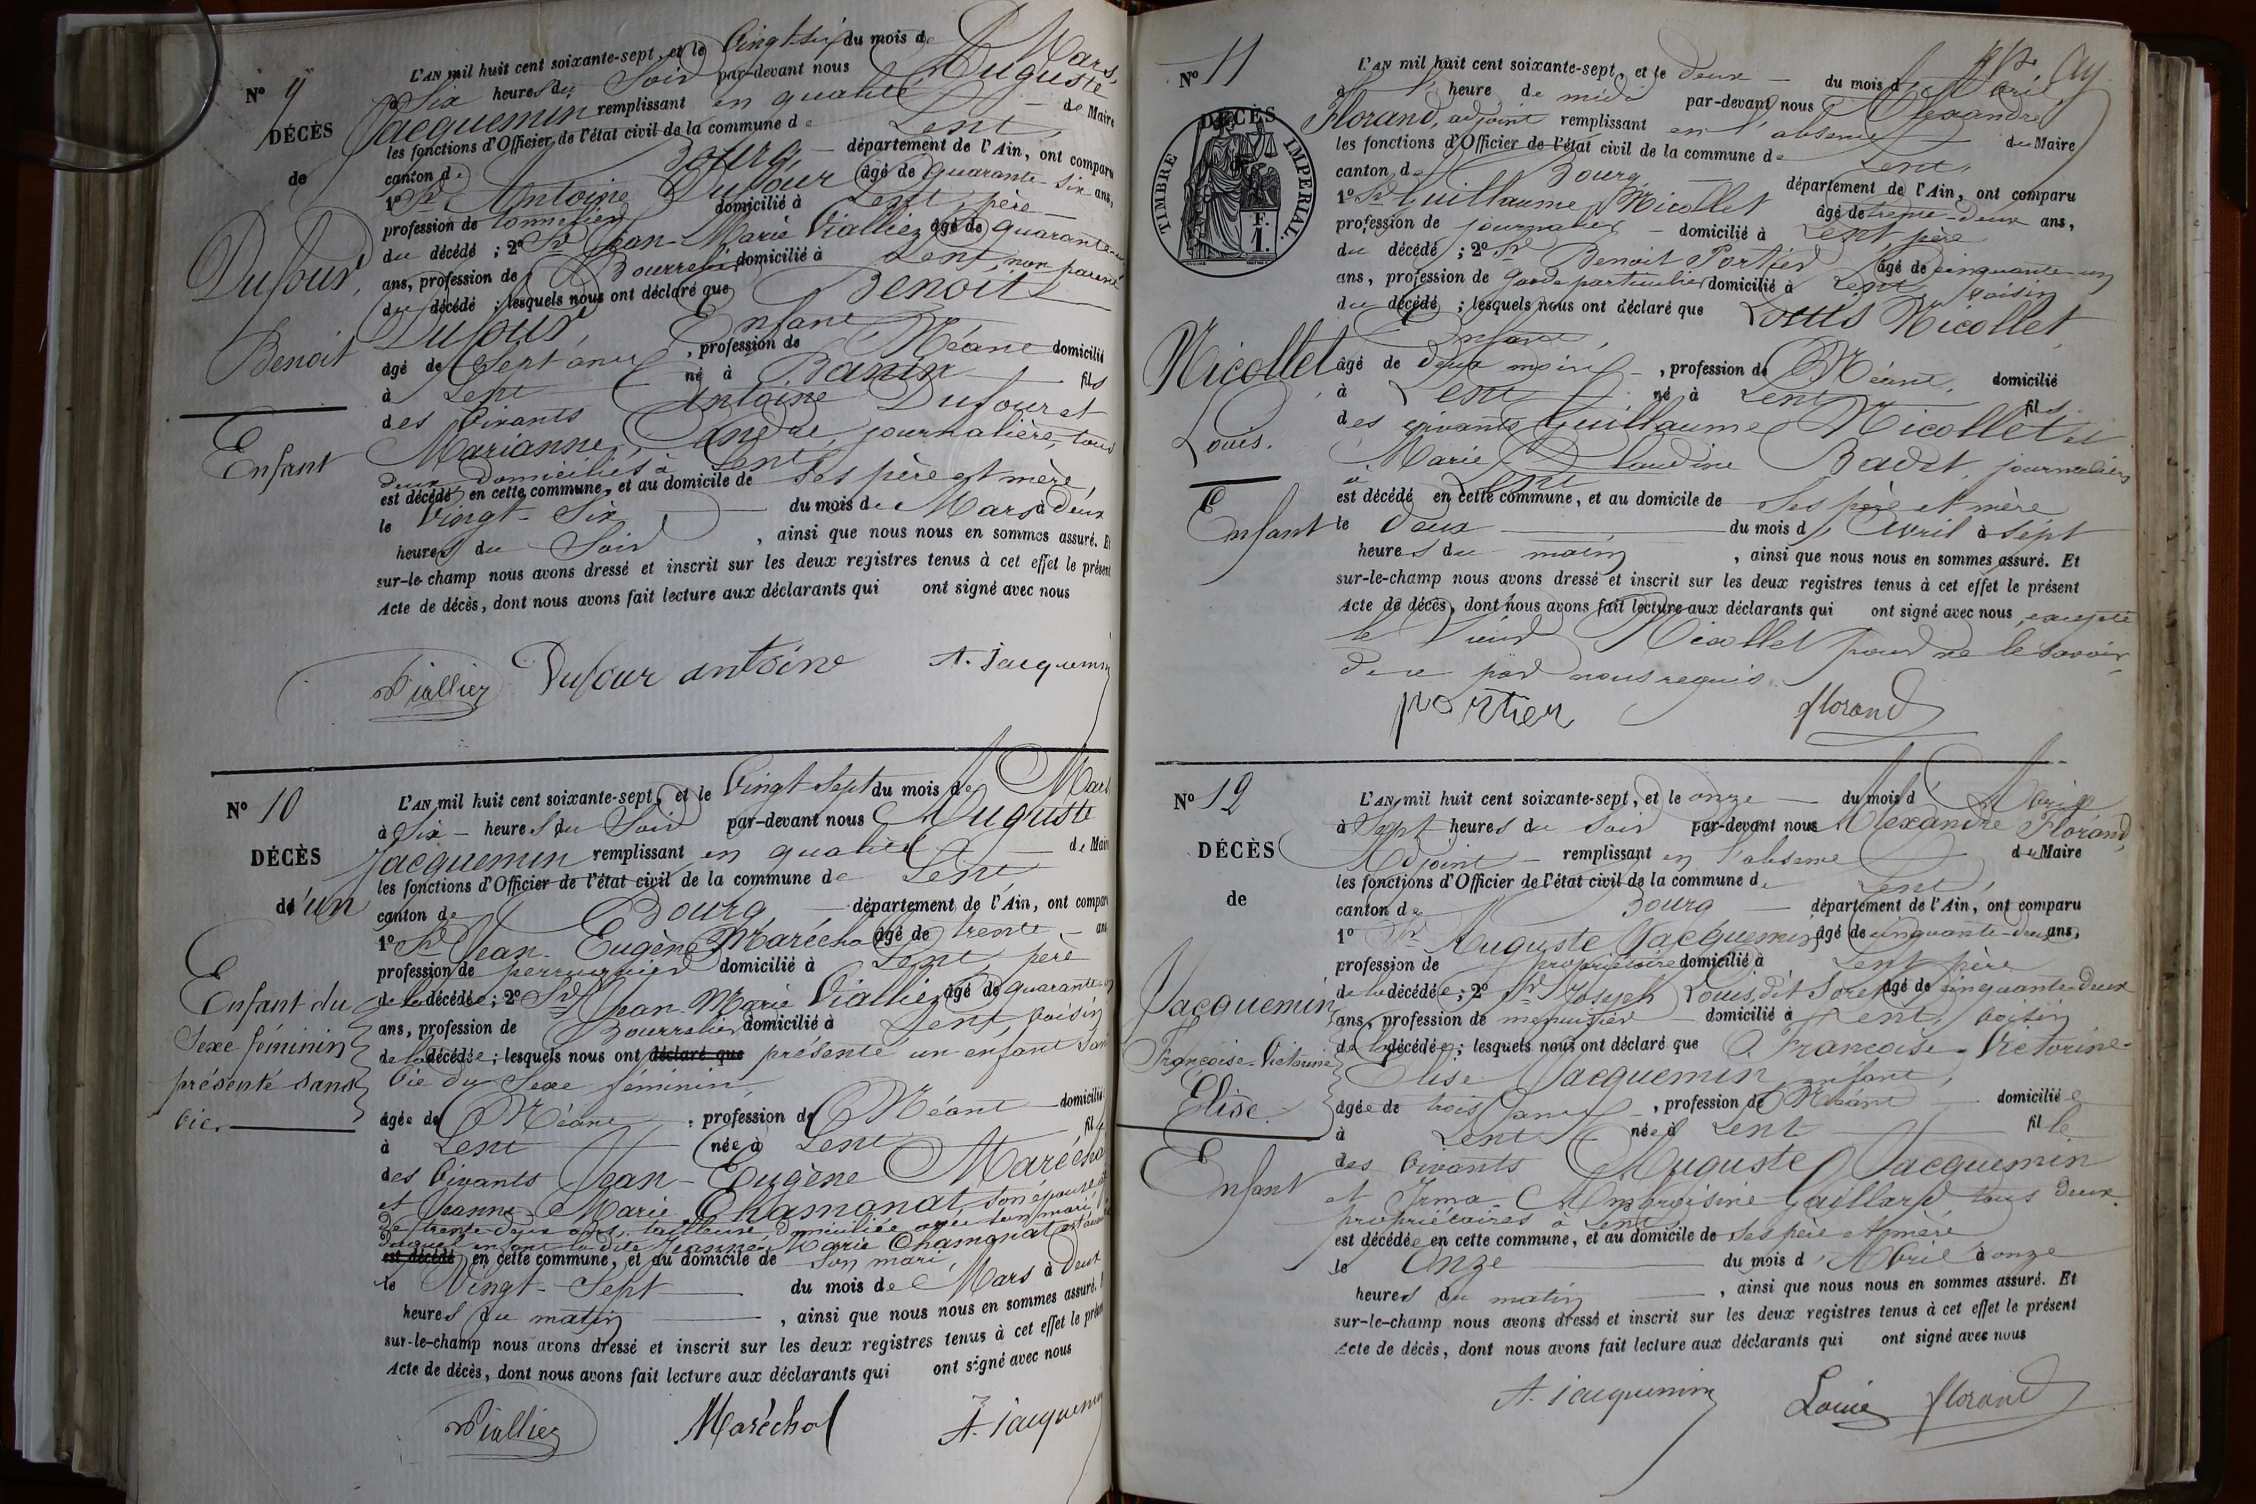 N° 9
DÉCÈS
de
Dufour,
Benoit
Enfant
L'AN mil huit cent soixante-sept, et le Vingt-six du mois de Mars,
à Six heures du Soir par-devant nous Auguste
Jacquemin remplissant en qualité de Maire
les fonctions d'Officier de l'état civil de la commune de Lent,
canton de Bourg département de l'Ain, ont comparu
1° Sr Antoine Dufour âgé de quarante-six ans,
profession de tonnelier domicilié à Lent, père
du décédé ; 2° Sr Jean-Marie Vialliez âgé de quarante-un
ans, profession de Bourrelier domicilié à Lent, non parent
du décédé ; lesquels nous ont déclaré que Benoit
Dufour, Enfant
âgé de Sept ans, profession de Néant domicilié
à Lent né à Banin fils
des Vivants Antoine Dufour et
Marianne André, journalière, tous
deux domiciliés à Lent
est décédé en cette commune, et au domicile de ses père et mère,
le Vingt-Six du mois de Mars à deux
heures du Soir, ainsi que nous nous en sommes assuré. Et
sur-le-champ nous avons dressé et inscrit sur les deux registres tenus à cet effet le présent
Acte de décès, dont nous avons fait lecture aux déclarants qui ont signé avec nous
Vialliez Dufour antoine A. Jacquemin
N° 10
DÉCÈS
d'un
Enfant du
Sexe féminin
présenté sans
vie.
L'AN mil huit cent soixante-sept, et le Vingt-Sept du mois de Mars
à Six heures du Soir par-devant nous Auguste
Jacquemin remplissant en qualité de Maire
les fonctions d'Officier de l'état civil de la commune de Lent
canton de Bourg département de l'Ain, ont comparu
1° Sr Jean-Eugène Maréchal âgé de trente ans
profession de perruquier domicilié à Lent, père
de la décédée ; 2° Sr Jean-Marie Vialliez âgé de quarante-un
ans, profession de Bourrelier domicilié à Lent, voisin
de la décédée ; lesquels nous ont déclaré que présenté un enfant sans
vie du Sexe féminin
âgée de Néant, profession de Néant domicilié
à Lent née à Lent fille
des Vivants Jean-Eugène Maréchal
et Jeanne-Marie Chamonat son épouse
de trente-deux ans, tailleuse domiciliée avec son mari,
duquel enfant la dite Jeanne-Marie Chamonat
est décédé en cette commune, et au domicile de son mari
le Vingt-Sept du mois de Mars à deux
heures du matin, ainsi que nous nous en sommes assuré. Et
sur-le-champ nous avons dressé et inscrit sur les deux registres tenus à cet effet le présent
Acte de décès, dont nous avons fait lecture aux déclarants qui ont signé avec nous
Vialliez Maréchal A. Jacquemin
N° 11
DÉCÈS
TIMBRE IMPERIAL.
F.
1.
Nicollet
Louis.
Enfant
L'AN mil huit cent soixante-sept, et le deux du mois d'Avril
à l'heure de midi par-devant nous Alexandre
Florand, adjoint remplissant en l'absence du Maire
les fonctions d'Officier de l'état civil de la commune de Lent,
canton de Bourg département de l'Ain, ont comparu
1° Sr Guillaume Nicollet âgé de trente-deux ans,
profession de journalier domicilié à Lent, père
du décédé ; 2° Sr Benoit Portier âgé de cinquante-un
ans, profession de garde particulier domicilié à Lent, voisin
du décédé ; lesquels nous ont déclaré que Louis Nicollet,
Enfant,
âgé de deux mois, profession de Néant, domicilié
à Lent né à Lent fils
des vivants Guillaume Nicollet et
Marie Claudine Badet, journaliers
à Lent
est décédé en cette commune, et au domicile de ses père et mère
le deux du mois d'Avril à sept
heures du matin, ainsi que nous nous en sommes assuré. Et
sur-le-champ nous avons dressé et inscrit sur les deux registres tenus à cet effet le présent
Acte de décès, dont nous avons fait lecture aux déclarants qui ont signé avec nous, excepté
le Sieur Nicollet pour ne le savoir
de ce par nous requis.
portier florand
N° 12
DÉCÈS
de
Jacquemin
Françoise-Victorine
Elise
Enfant
L'AN mil huit cent soixante-sept, et le onze du mois d'Avril
à Sept heures du Soir par-devant nous Alexandre Florand,
Adjoint remplissant en l'absence du Maire
les fonctions d'Officier de l'état civil de la commune de Lent,
canton de Bourg département de l'Ain, ont comparu
1° Sr Auguste Jacquemin âgé de cinquante-deux ans,
profession de propriétaire domicilié à Lent père
de la décédée ; 2° Sr Joseph Louis, dit Sorel âgé de cinquante-deux
ans, profession de menuisier domicilié à Lent, voisin
de la décédée ; lesquels nous ont déclaré que Françoise-Victorine-
Elise Jacquemin, enfant,
âgée de trois ans, profession de Néant domiciliée
à Lent née à Lent fille
des Vivants Auguste Jacquemin
et Irma-Ambroisine Gaillard tous deux
propriétaires à Lent
est décédée en cette commune, et au domicile de ses père et mère
le Onze du mois d'Avril à onze
heures du matin, ainsi que nous nous en sommes assuré. Et
sur-le-champ nous avons dressé et inscrit sur les deux registres tenus à cet effet le présent
Acte de décès, dont nous avons fait lecture aux déclarants qui ont signé avec nous
A. Jacquemin Louis florand